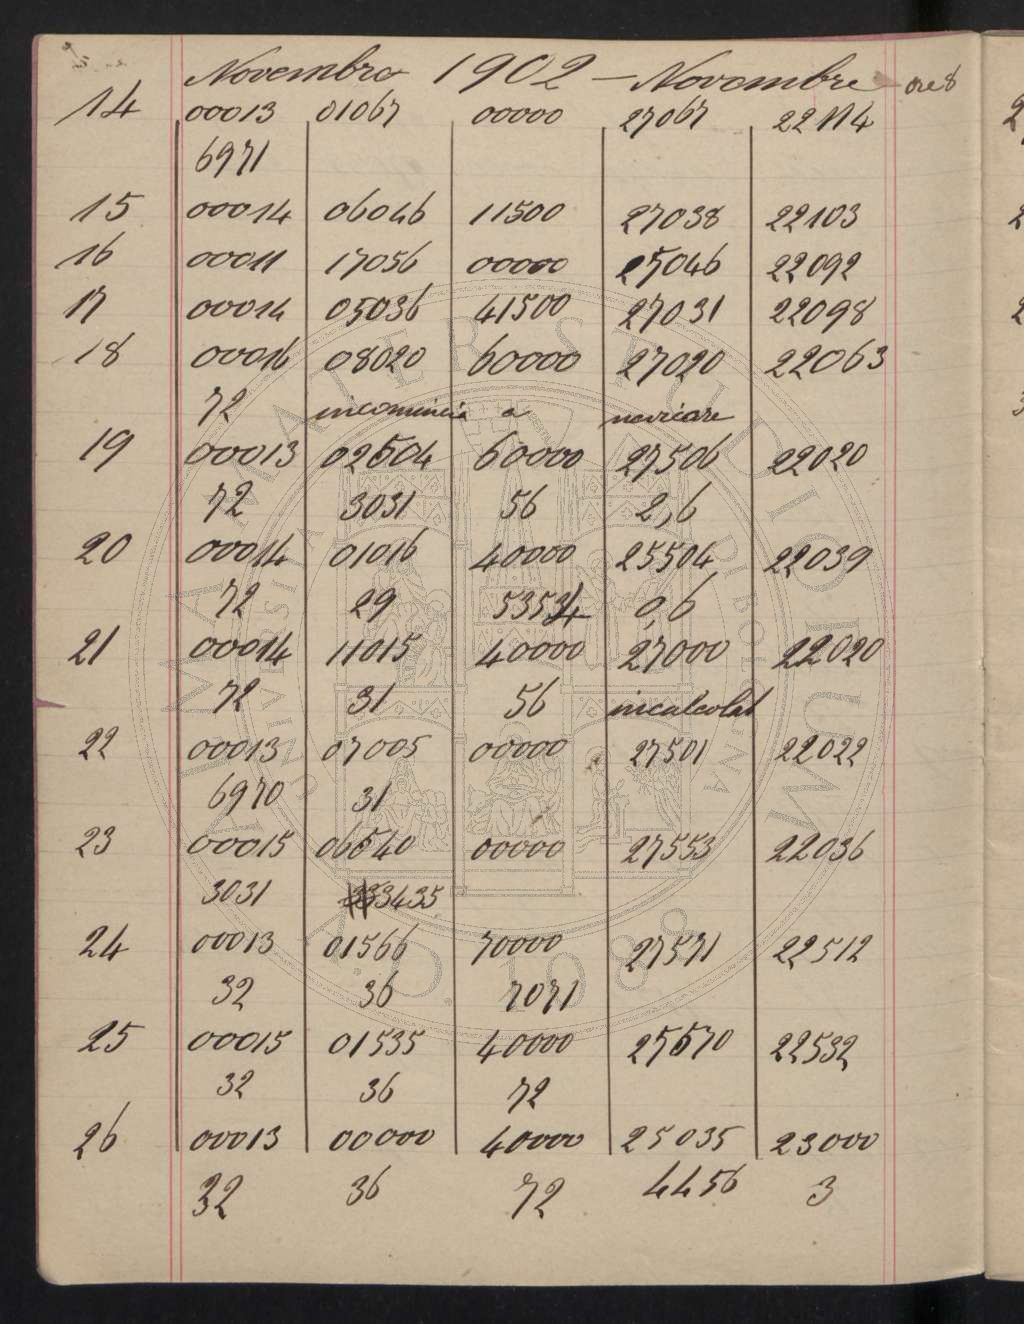 Novembre 1902 - Novembre ore 8
14 00013 01067 00000 27067 22114
6971
15 00014 06046 11500 27038 22103
16 00011 17056 00000 25046 22092
17 00014 05036 41500 27031 22098
18 00016 08020 60000 27020 22063
72 incomincia a nevicare
19 00013 02504 60000 27506 22020
72 3031 56 2,6
20 00014 01016 40000 25504 22039
72 29 5354 0,6
21 00014 11015 40000 27000 22020
72 31 56 incalcolat
22 00013 07005 00000 27501 22022
6970 31
23 00015 06540 00000 27553 22036
3031 3435
24 00013 01566 70000 27571 22512
32 36 7071
25 00015 01535 40000 27570 22532
32 36 72
26 00013 00000 40000 25035 23000
32 36 72 4456 3
ALMA MATER STUDIORUM
A.D. 1088